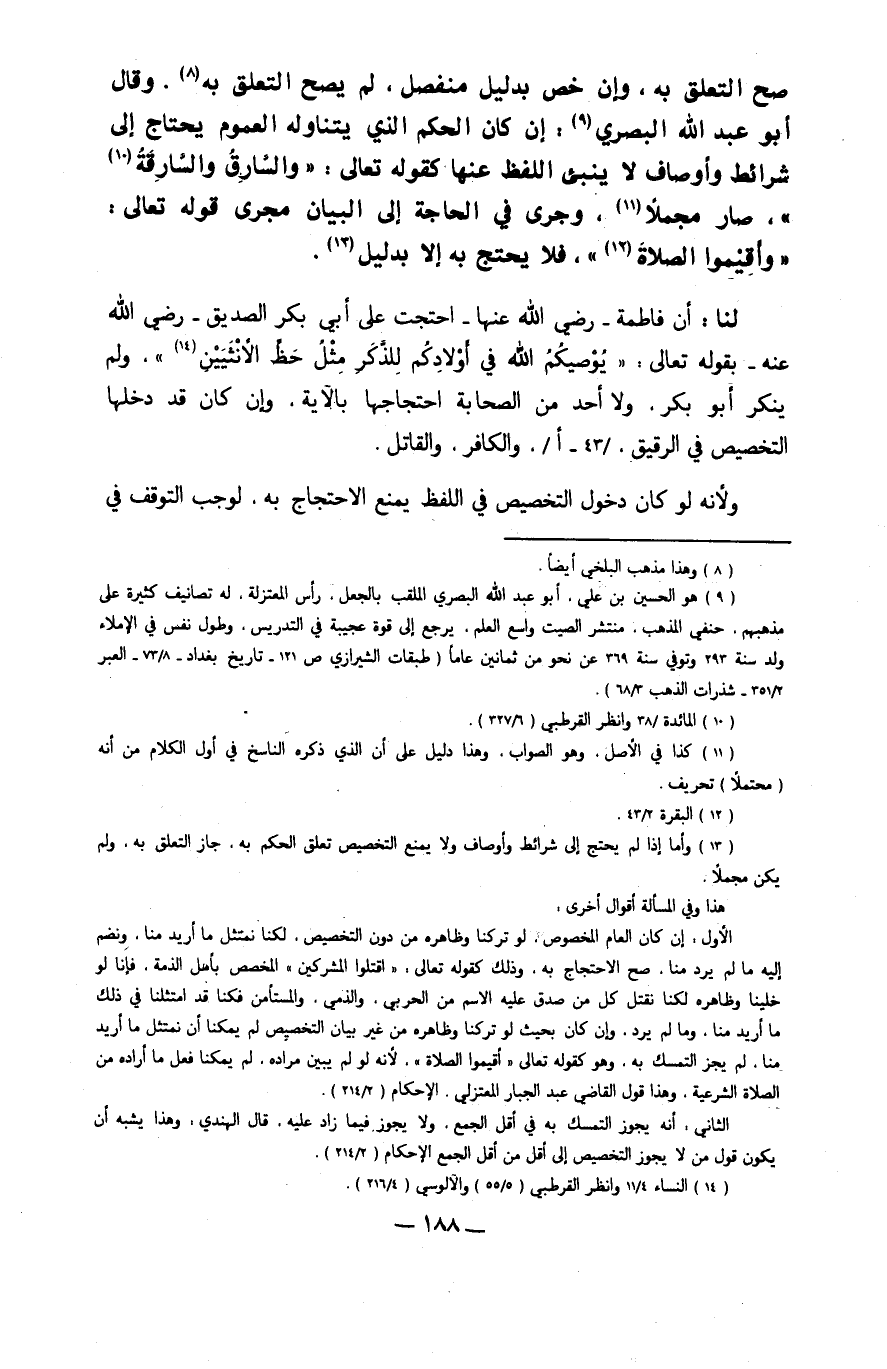 صح التعلق به ، وإن خص بدليل منفصل ، لم يصح التعلق به(٨) . وقال
أبو عبد الله البصري(٩) : إن كان الحكم الذي يتناوله العموم يحتاج إلى
شرائط وأوصاف لا ينبئ اللفظ عنها كقوله تعالى : « والسَّارِقُ والسَّارِقَةُ(١٠)
» ، صار مجملاً(١١) ، وجرى في الحاجة إلى البيان مجرى قوله تعالى :
« وأقيْموا الصلاةَ(١٢) » ، فلا يحتج به إلا بدليل(١٣) .
لنا : أن فاطمة ـ رضي الله عنها ـ احتجت على أبي بكر الصديق ـ رضي الله
عنه ـ بقوله تعالى : « يُوْصيكُمُ الله في أوْلادِكُم لِلذَّكَرِ مِثْلُ حَظِّ الأنْثَيَيْنِ(١٤) » ، ولم
ينكر أبو بكر ، ولا أحد من الصحابة احتجاجها بالآية ، وإن كان قد دخلها
التخصيص في الرقيق ، /٤٣ ـ أ / ، والكافر ، والقاتل .
ولأنه لو كان دخول التخصيص في اللفظ يمنع الاحتجاج به ، لوجب التوقف في
( ٨ ) وهذا مذهب البلخي أيضاً .
( ٩ ) هو الحسين بن علي ، أبو عبد الله البصري الملقب بالجعل ، رأس المعتزلة ، له تصانيف كثيرة على
مذهبهم ، حنفي المذهب ، منتشر الصيت واسع العلم ، يرجع إلى قوة عجيبة في التدريس ، وطول نفس في الإملاء
ولد سنة ٢٩٣ وتوفي سنة ٣٦٩ عن نحو من ثمانين عاماً ( طبقات الشيرازي ص ١٢١ ـ تاريخ بغداد ـ ٧٣/٨ ـ العبر
٣٥١/٢ ـ شذرات الذهب ٦٨/٣ ) .
( ١٠ ) المائدة /٣٨ وانظر القرطبي ( ٣٢٧/٦ ) .
( ١١ ) كذا في الأصل ، وهو الصواب ، وهذا دليل على أن الذي ذكره الناسخ في أول الكلام من أنه
( محتملاً ) تحريف .
( ١٢ ) البقرة ٤٣/٢ .
( ١٣ ) وأما إذا لم يحتج إلى شرائط وأوصاف ولا يمنع التخصيص تعلق الحكم به ، جاز التعلق به ، ولم
يكن مجملاً .
هذا وفي المسألة أقوال أخرى :
الأول : إن كان العام المخصوص ، لو تركنا وظاهره من دون التخصيص ، لكنا نمتثل ما أريد منا ، ونضم
إليه ما لم يرد منا ، صح الاحتجاج به ، وذلك كقوله تعالى : « اقتلوا المشركين » المخصص بأهل الذمة ، فإنا لو
خلينا وظاهره لكنا نقتل كل من صدق عليه الاسم من الحربي ، والذمي ، والمستأمن فكنا قد امتثلنا في ذلك
ما أريد منا ، وما لم يرد ، وإن كان بحيث لو تركنا وظاهره من غير بيان التخصيص لم يمكنا أن نمتثل ما أريد
منا ، لم يجز التمسك به ، وهو كقوله تعالى « أقيموا الصلاة » ، لأنه لو لم يبين مراده ، لم يمكنا فعل ما أراده من
الصلاة الشرعية ، وهذا قول القاضي عبد الجبار المعتزلي . الإحكام ( ٢١٤/٢ ) .
الثاني : أنه يجوز التمسك به في أقل الجمع ، ولا يجوز فيما زاد عليه ، قال الهندي : وهذا يشبه أن
يكون قول من لا يجوز التخصيص إلى أقل من أقل الجمع الإحكام ( ٢١٤/٢ ) .
( ١٤ ) النساء ١١/٤ وانظر القرطبي ( ٥٥/٥ ) والألوسي ( ٢١٦/٤ ) .
ـ ١٨٨ ـ